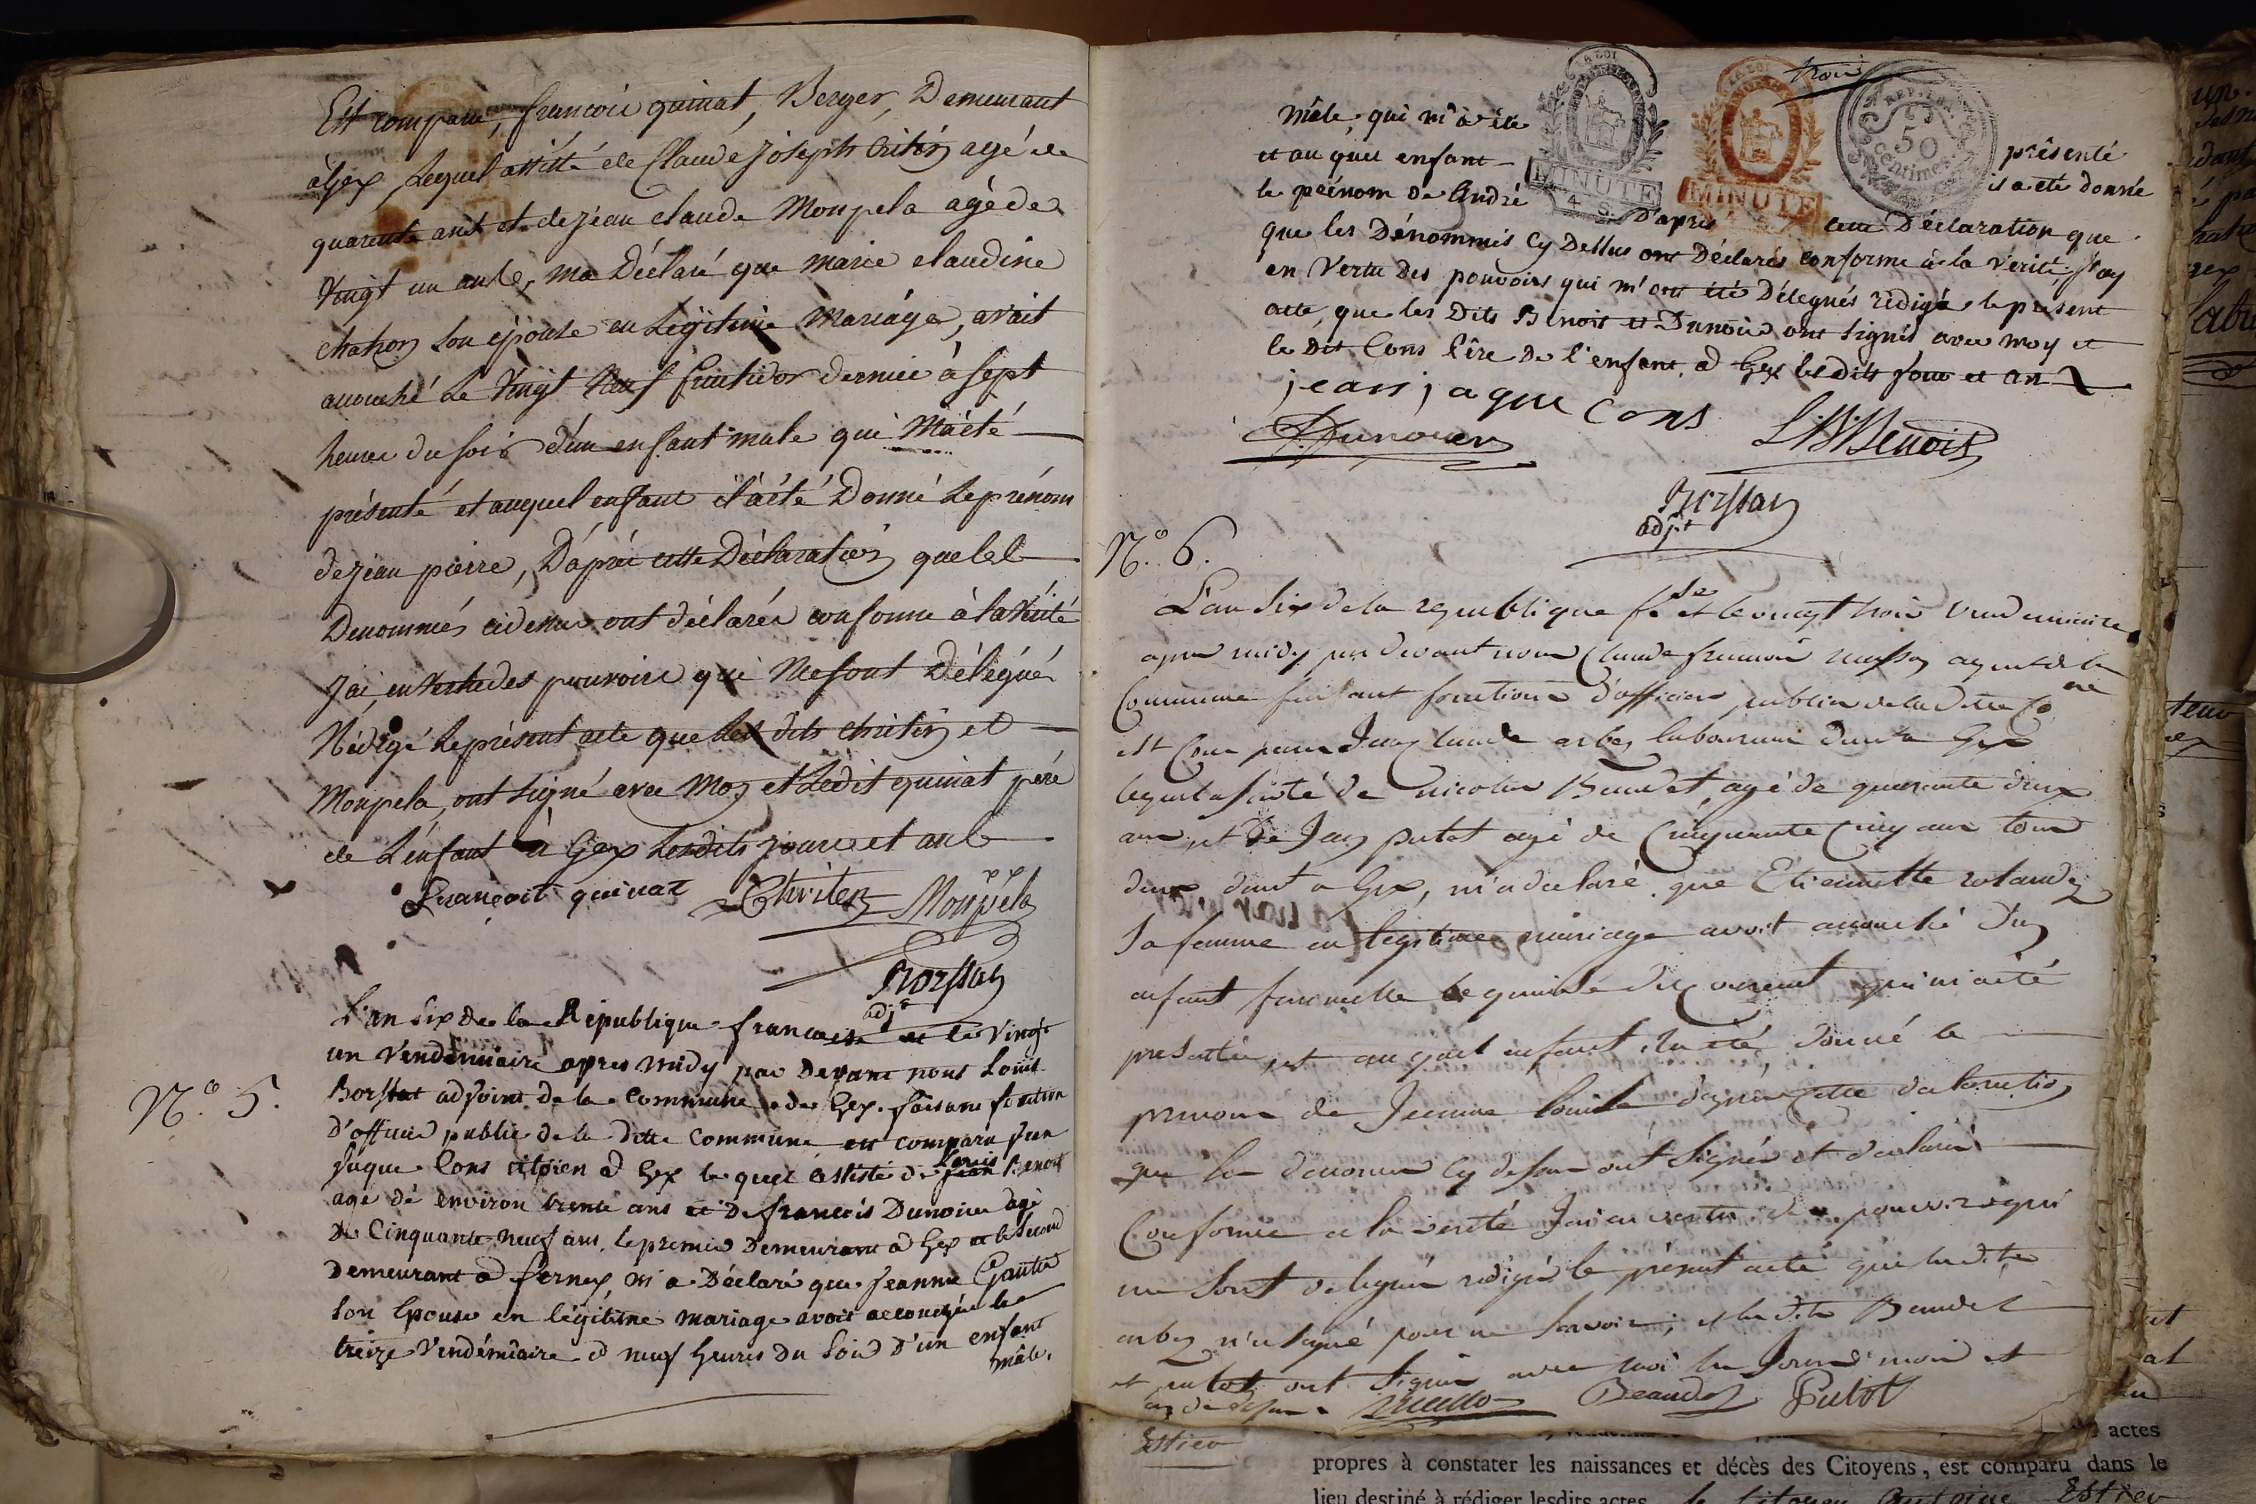 Est comparu, francois quinat, Berger, Demeurant
à Gex Lequel assisté de Claude Joseph Critin agé de
quarente ans et de jean claude Monpela agé de
Vingt un ans, ma Déclaré que marie claudine
chahon son épouse en Légitime Mariage, avait
accouché Le Vingt Neuf fructidor dernier à sept
heures du soir d'un enfant male qui M'a été
présenté et auquel enfant il a été Donné Le prénom
de jean pierre, D'aprés cette Déclaration que les
Denommés ci dessus ont déclarés conforme à la Vérité
J'ai, en Vertu des pouvoirs qui Me sont Délégués
Rédigé Le présent acte que Les dits Chritin et
Monpela, ont signé avec Moy et Ledit quinat père
de L'enfant à Gex Lesdits jours et ans
François quinat Chriten Monpela
Borssat
adjt
L'an six de la République francaise et le Vingt
un Vendémiaire apres midy par Devant nous Louis
N.° 5.
Borssat adjoint de la Commune de Gex faisant fonction
d'officier public de la ditte Commune est comparu Jean
Jaque Cons citoien à Gex le quel assisté de jean Louis Benoit
agé de environ trente ans et de francois Dunoier agé
De Cinquante neuf ans, le premier Demeurant à Gex et le second
Demeurant à ferney, m'a Déclaré que Jeanne Gautier
son Epouse en légitime mariage avoit accouchée le
treize Vendémiaire à neuf heures Du Soir D'un enfant
mâle,
trois
mâle, qui m'a été présenté
et au quel enfant il a été donné
le prénom de André D'apres cette Déclaration que
que les Dénommés Cy Dessus ont Déclarés Conforme à la Verité, J'ay
en Vertu des pouvoirs qui m'ont été Délegués rédigé le présent
acte, que les Dits Benoit et Dunoier ont signés avec moy et
le dit Cons Père de l'enfant, à Gex les dits jour et an
A LA LOI
MINUTE
4 S.
A LA LOI
MINUTE
REP. FRA.
50
centimes
jean jaque Cons
Dunoier LS Benoit
Borssat
adjt
N.° 6.
L'an Six de la republique fse et le vingt trois Vendemiaire
apres midy par devant nous Claude francois agent de la
Commune faisant fonctions d'officier public de la ditte Cone
est Comparu Jean Claude arbez laboureur dud. Gex
lequel assisté de nicolas Beaudet, agé de quarante deux
ans et de Jean putot agé de Cinquante Cinq ans tous
deux dud. a Gex, m'a declaré que Etiennette rolandez
Sa femme en legitime mariage avoit accouché d'un
enfant femmelle le quinze du Courant qui m'a été
presentée, et au quel enfant il a été donné le
prenom de Jeanne Louise d'apres Cette declaration
que les denommés Cy dessus ont Signés et declaré
Conforme a la verité J'ai en vertu des pouvoirs qui
me Sont delegués redigé le présent acte que ledit
arbez n'a signé pour ne Savoir, et lesdits Beaudet
et putot ont Signés avec moi les Jour mois et
an de dessus. Beaudet Putot
Estieu
actes
propres à constater les naissances et décès des Citoyens, est comparu dans le
lieu destiné à rédiger lesdits actes, le Citoyen Antoine Estieu